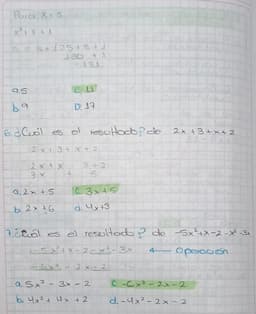 Para: x=5
a. 5
c. 11
b. 9
D. 17
6. ¿Cuál es el resultado? de 2x+3+x+2
2x+3+x+2
2x+x 3+2
3x + 5
a. 2x+5
c. 3x+5
b. 2x+6
d. 4x+3
7. ¿Cuál es el resultado? de -5x²+x-2-x²-3x
-5x²+x-2-x²-3x ← operación
-6x²-2x-2
a. 5x²-3x-2
c. -6x²-2x-2
b. 4x²+4x+2
d. -4x²-2x-2